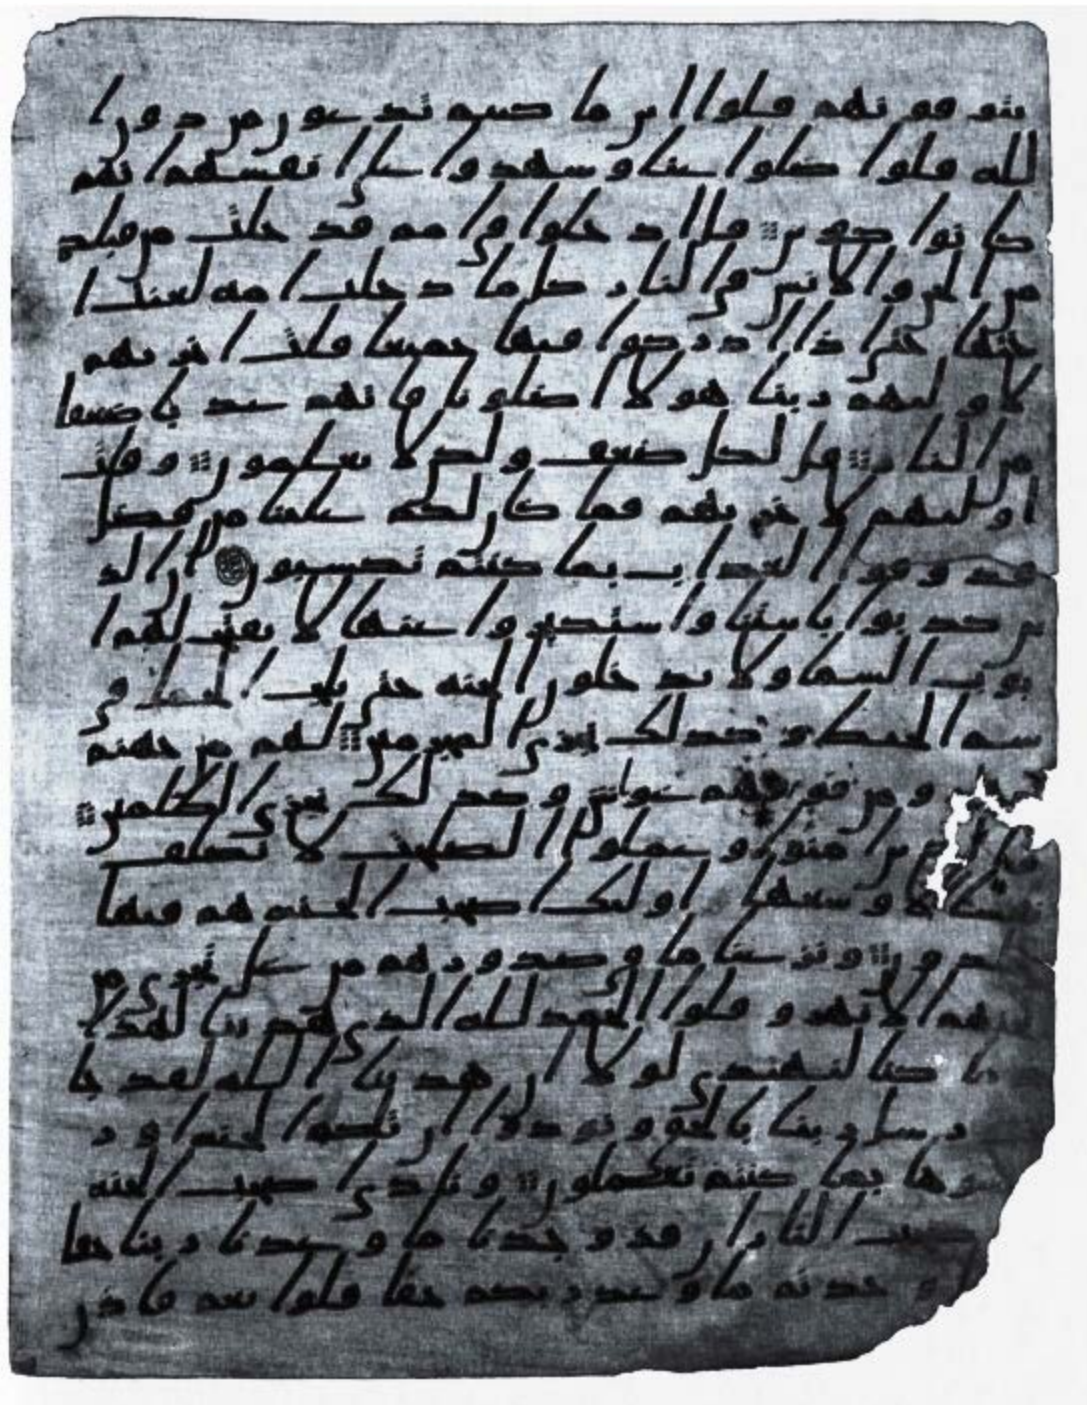 يتوفونهم قلوا اين ما كنتم تدعون من دون ا
لله قلوا ضلوا عنا وشهدوا على انفسهم انهم
كانوا كفرين قل ادخلوا في امم قد خلت من قبلكم
من الجن والانس في النار كلما دخلت امه لعنت ا
ختها حتى اذا ادركوا فيها جميعا قلت اخريهم
لاوليهم ربنا هولا اضلونا فاتهم عذبا ضعفا
من النار قل لكل ضعف ولكن لا تعلمون وقلت
اوليهم لاخريهم فما كان لكم علينا من فضل
فذوقوا العذاب بما كنتم تكسبون ان الذ
ين كذبوا بايتنا واستكبروا عنها لا تفتح لهم ا
بوب السما ولا يدخلون الجنه حتى يلج الجمل في
سم الخيط وكذلك نجزي المجرمين لهم من جهنم
ومن فوقهم غواش وكذلك نجزي الظلمين
امنوا وعملوا الصلحت لا نكلف
نفسا الا وسعها اولئك اصحب الجنه هم فيها
خلدون ونزعنا ما في صدورهم من غل تجري من
تحتهم الانهر وقلوا الحمد لله الذي هدينا لهذا
ما كنا لنهتدي لولا ان هدينا الله لقد جا
رسل ربنا بالحق ونودوا ان تلكم الجنه اور
موها بما كنتم تعملون ونادى اصحب الجنه
صحب النار ان قد وجدنا ما وعدنا ربنا حقا
وجدتم ما وعد ربكم حقا قلوا نعم فاذن